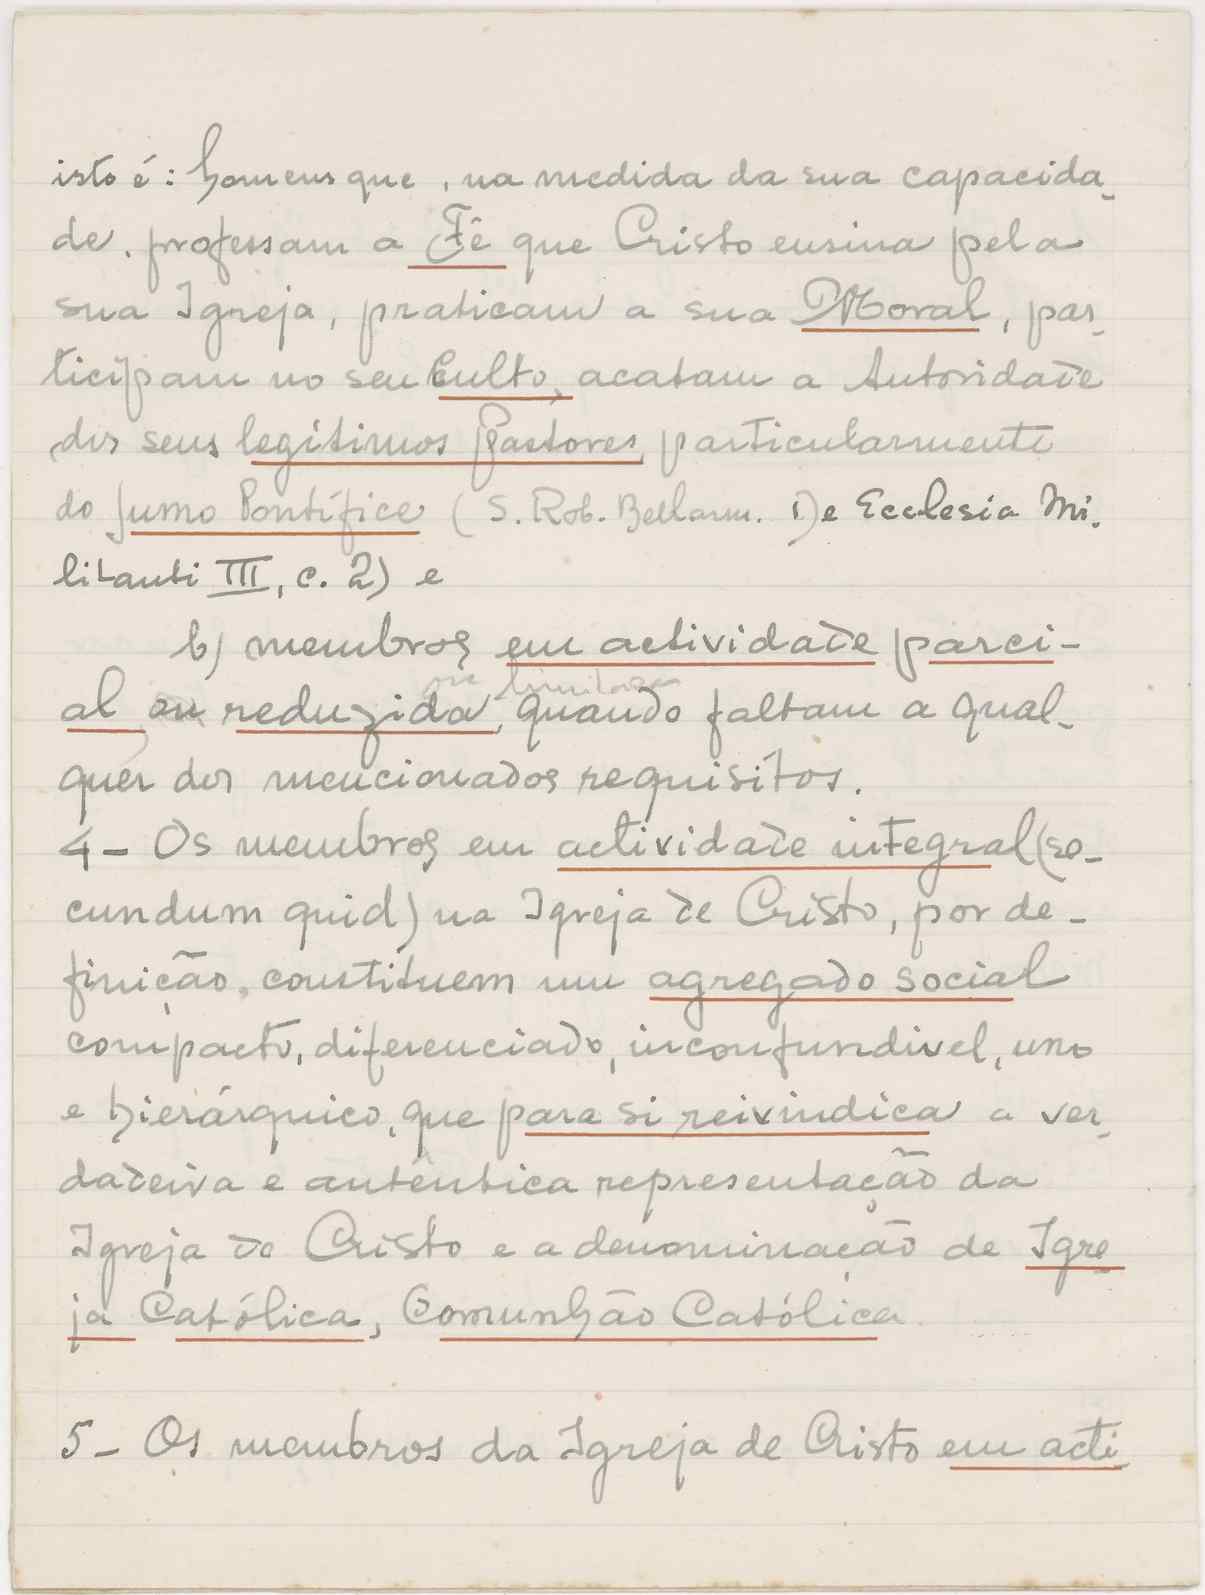 isto é: homens que, na medida da sua capacida-
de, professam a Fé que Cristo ensina pela
sua Igreja, praticam a sua Moral, par-
ticipam no seu Culto, acatam a Autoridade
dos seus legítimos Pastores, particularmente
do Sumo Pontífice (S. Rob. Bellarm. De Ecclesia Mi-
litanti III, c. 2) e
b) membros em actividade parci-
ou limitada
al ou reduzida, quando faltam a qual-
quer dos mencionados requisitos.
4- Os membros em actividade integral (se-
cundum quid) na Igreja de Cristo, por de-
finição, constituem um agregado social
compacto, diferenciado, inconfundivel, uno
e hierárquico, que para si reivindica a ver-
dadeira e autêntica representação da
Igreja de Cristo e a denominação de Igre-
ja Católica, Comunhão Católica
5- Os membros da Igreja de Cristo em acti-